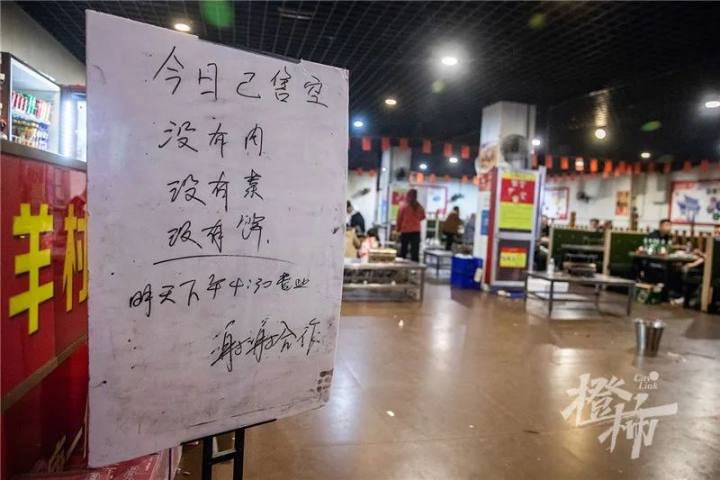 今日已售空
没有肉
没有素
没有饼
明天下午4:30营业
谢谢合作
羊村
City Link
橙柿